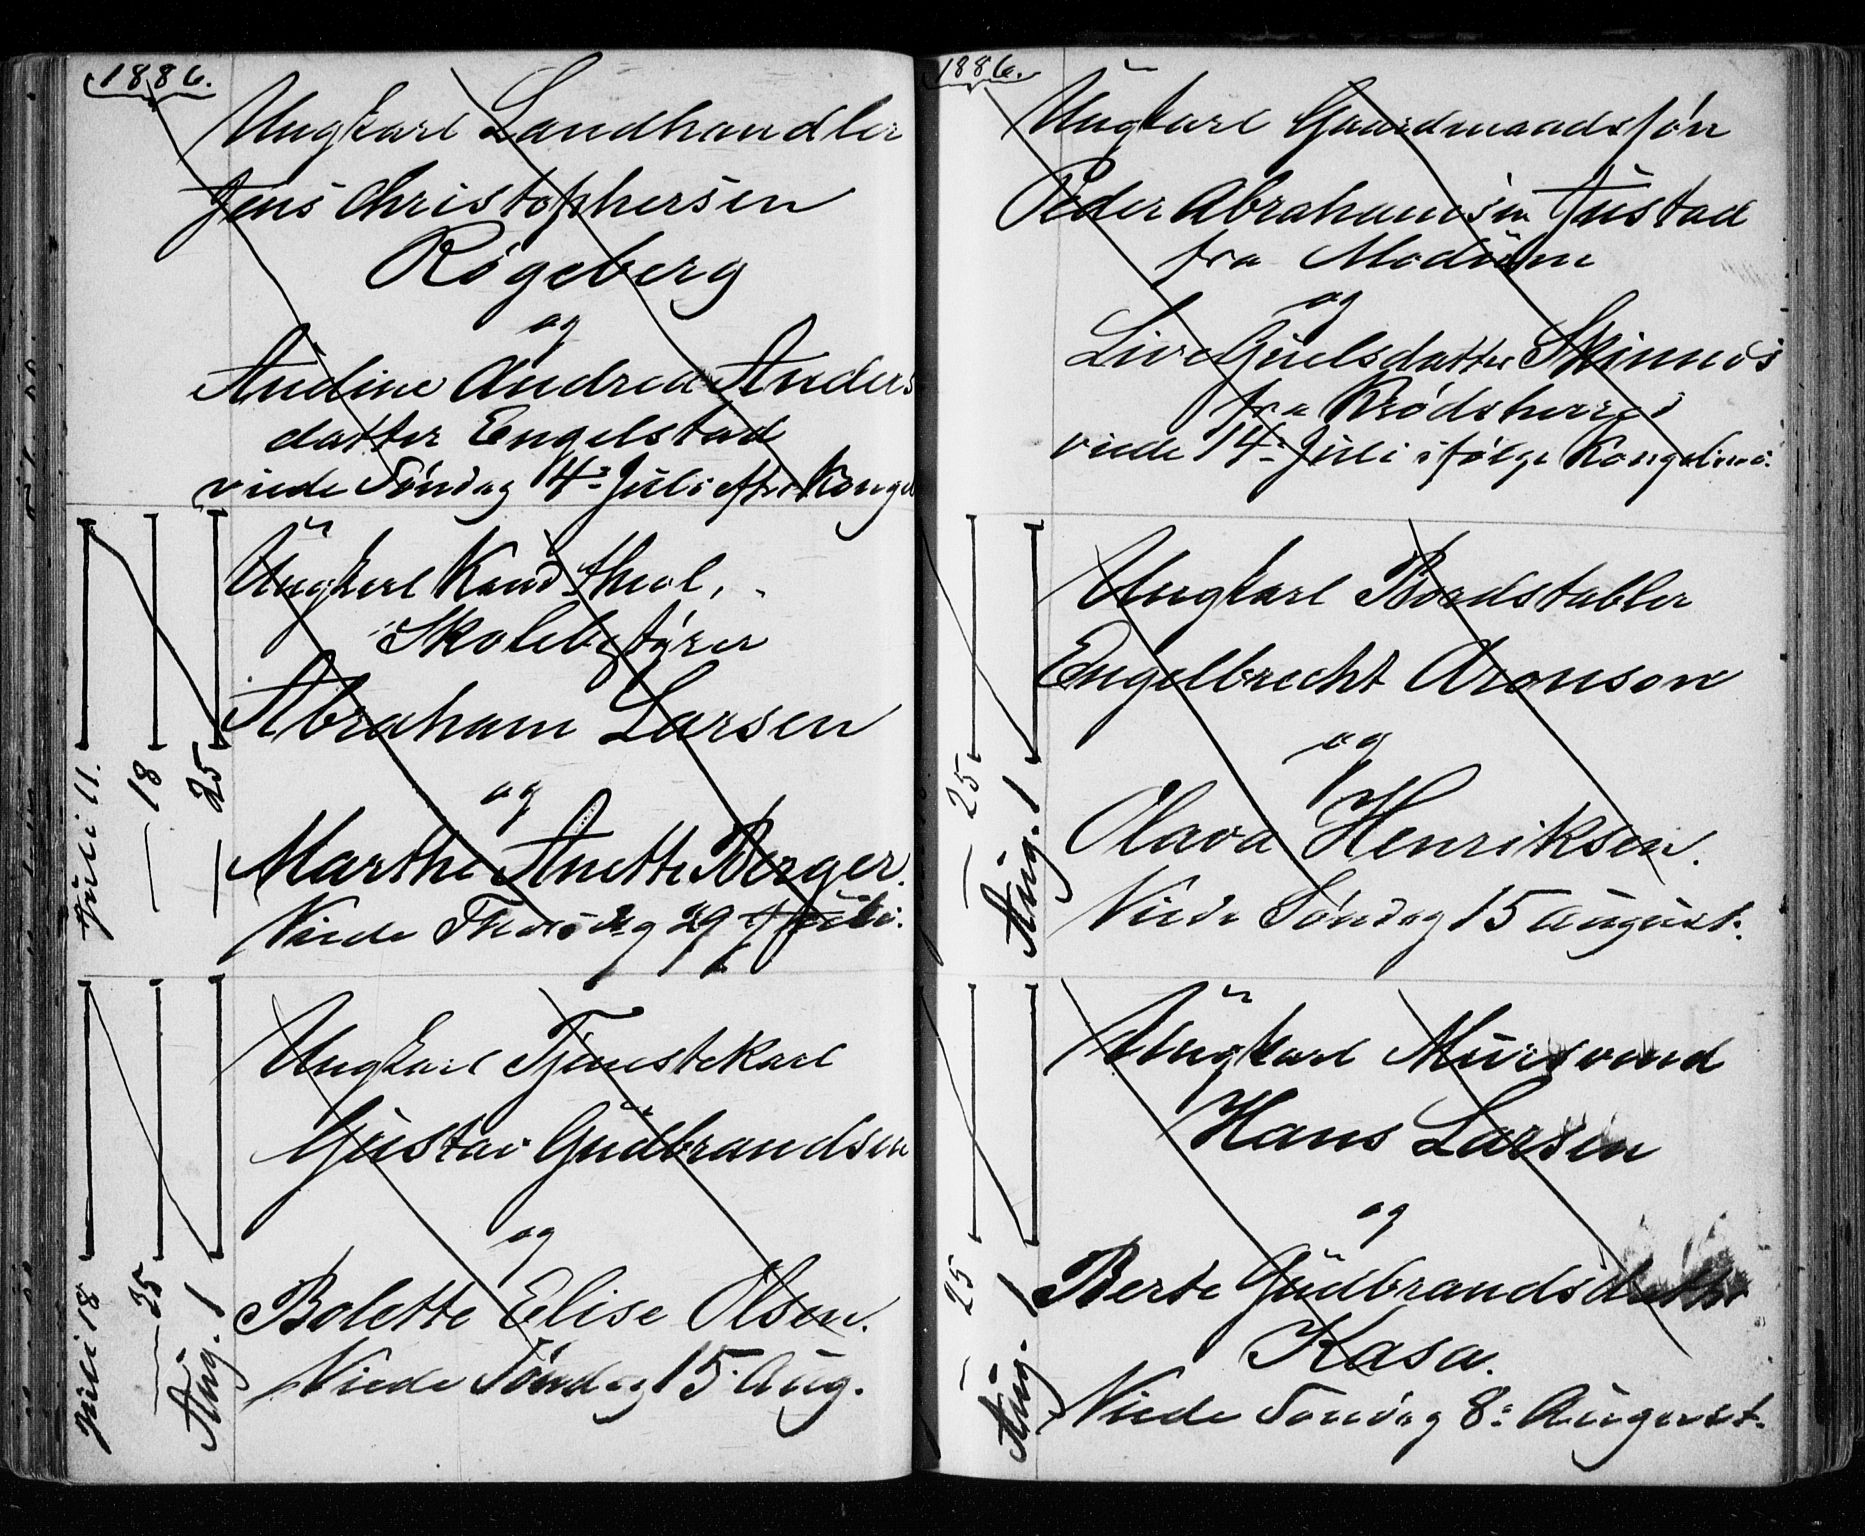 1886.
Ungkarl Landhandler
Jens Christophersen
Røgeberg
og
Andine Andrea Anders
datter Engelstad
viede Søndag 14: Juli efter Konge
Ungkarl Kand theol,
Skolebestÿrer
Abraham Larsen
og
Marthe Anette Berger.
Viede Thorsdag 29 Juli.
Juli 11.
— 18
— 25
Ungkarl Tjenestekarl
Gustav Gudbrandsen
og
Bolette Elise Olsen.
Viede Søndag 15. Aug.
Juli 18
— 25
Aug. 1
1886.
Ungkarl Gaardmandssøn
Peder Abrahamsen Justad
fra Modum
og
Live Gulsdatter Skinnes
fra Krødsherred
viede 14: Juli ifølge
Ungkarl Bordstabler
Engelbrecht Aronson
og
Olava Henriksen.
Viede Søndag 15 August.
— 25
Aug. 1
Ungkarl Mursvend
Hans Larsen
og
Berte Gudbrandsdatter
Kasa.
Viede Søndag 8: August.
— 25
Aug. 1